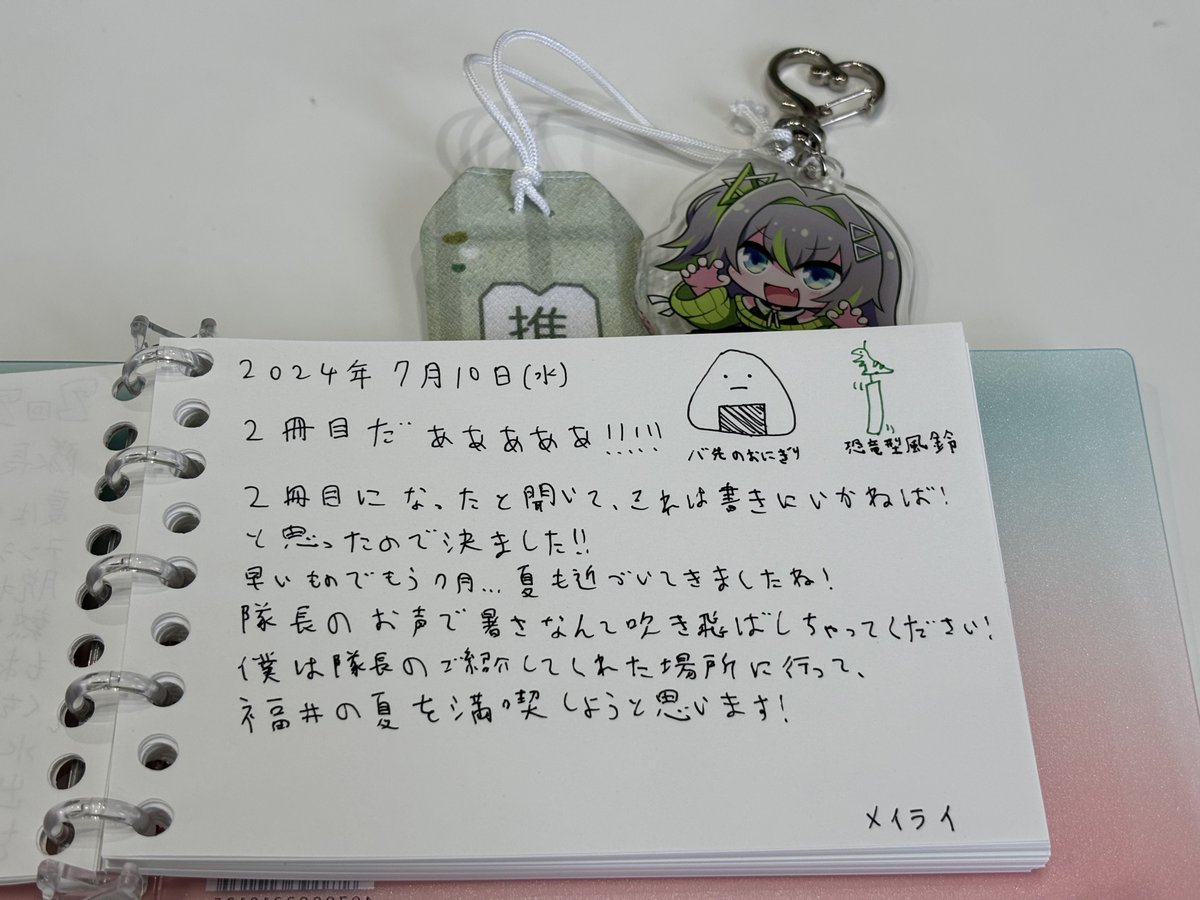 推
2024年 7月10日(水)
2冊目だぁぁぁぁぁ!!!!!
バ先のおにぎり
恐竜型風鈴
2冊目になったと聞いて、これは書きにいかねば!
と思ったので決ました!!
早いものでもう7月... 夏も近づいてきましたね!
隊長のお声で暑さなんて吹き飛ばしちゃってください!
僕は隊長のご紹介してくれた場所に行って、
福井の夏を満喫しようと思います!
メイライ